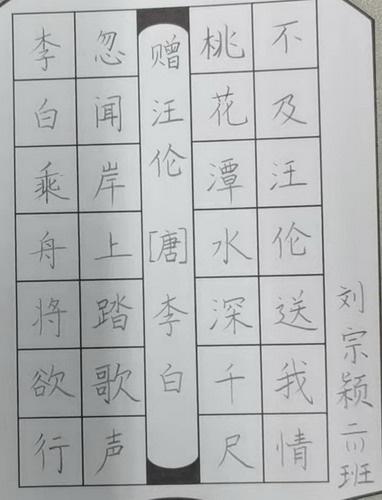 李白乘舟将欲行
忽闻岸上踏歌声
赠汪伦[唐]李白
桃花潭水深千尺
不及汪伦送我情
刘宗颖二(1)班